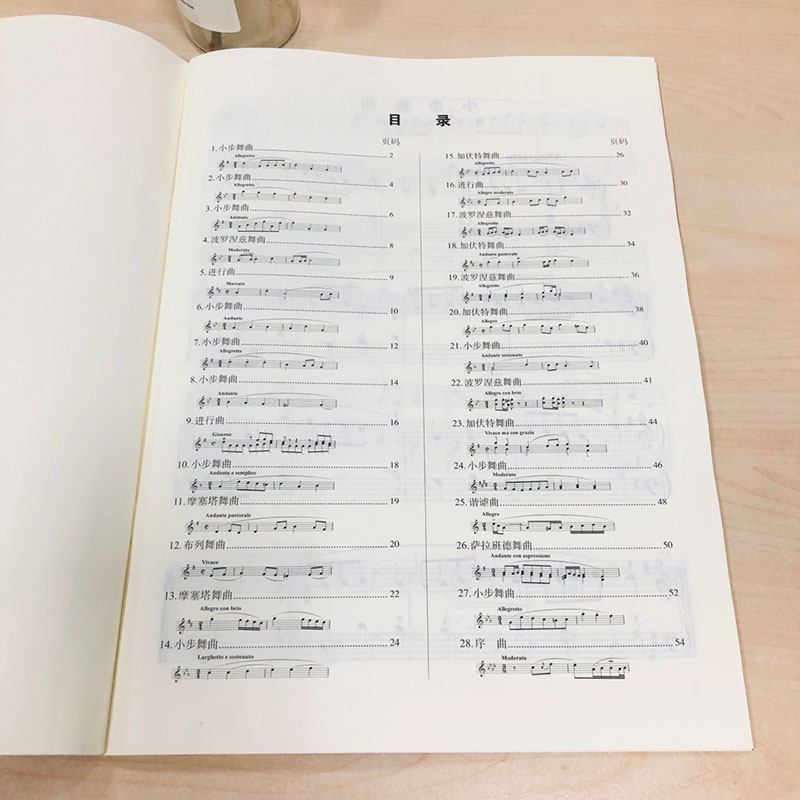 目 录
页码
1.小步舞曲 2
Allegretto
2.小步舞曲 4
Allegretto
3.小步舞曲 6
Animato
4.波罗涅兹舞曲 8
Moderato
5.进行曲 9
Marcato
6.小步舞曲 10
Andante
7.小步舞曲 12
Allegretto
8.小步舞曲 14
Andante
9.进行曲 16
Giocoso
10.小步舞曲 18
Andante e semplice
11.摩塞塔舞曲 19
Andante pastorale
12.布列舞曲 20
Vivace
13.摩塞塔舞曲 22
Allegro con brio
14.小步舞曲 24
Larghetto e sostenuto
页码
15.加伏特舞曲 26
Allegretto
16.进行曲 30
Allegro moderato
17.波罗涅兹舞曲 32
Allegretto
18.加伏特舞曲 34
Andante pastorale
19.波罗涅兹舞曲 36
Allegretto
20.加伏特舞曲 38
Allegro
21.小步舞曲 40
Andante sostenuto
22.波罗涅兹舞曲 41
Allegro con brio
23.加伏特舞曲 44
Vivace ma con grazia
24.小步舞曲 46
Moderato
25.谐谑曲 48
Allegro
26.萨拉班德舞曲 50
Andante con espressione
27.小步舞曲 52
Allegretto
28.序 曲 54
Moderato